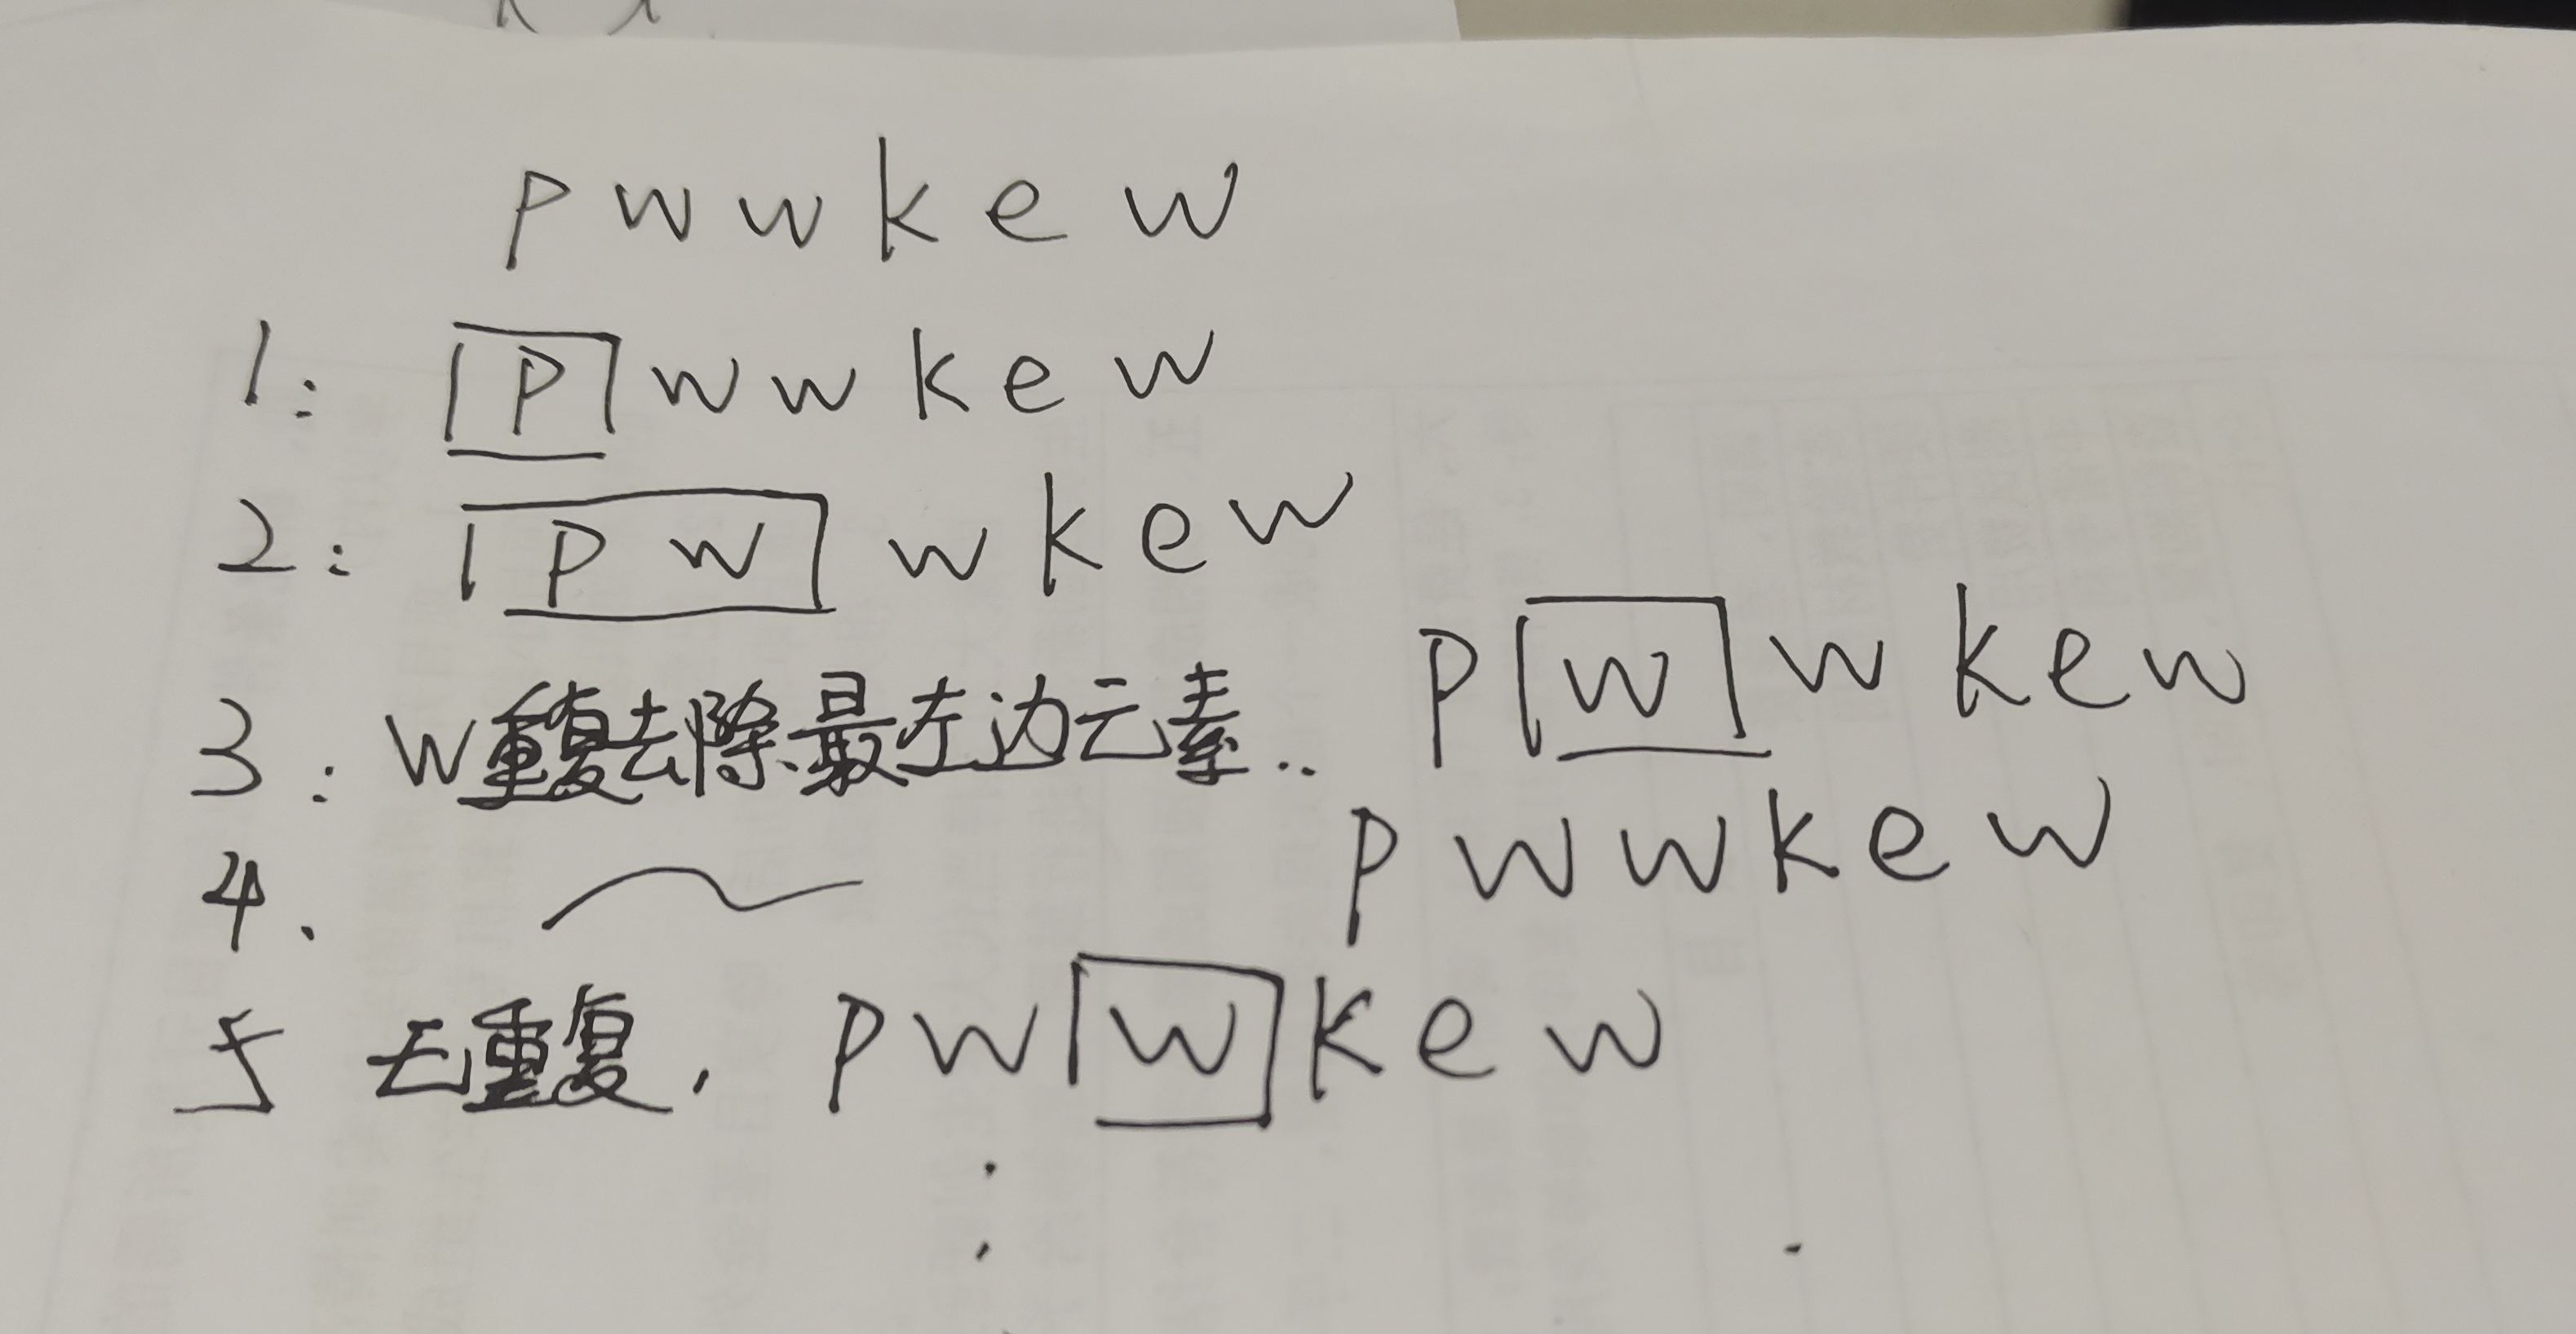 p w w k e w
1: p w w k e w
2: p w w k e w
3: w重复去除最左边元素.. p w w k e w
4. p w w k e w
5 无重复, p w w k e w